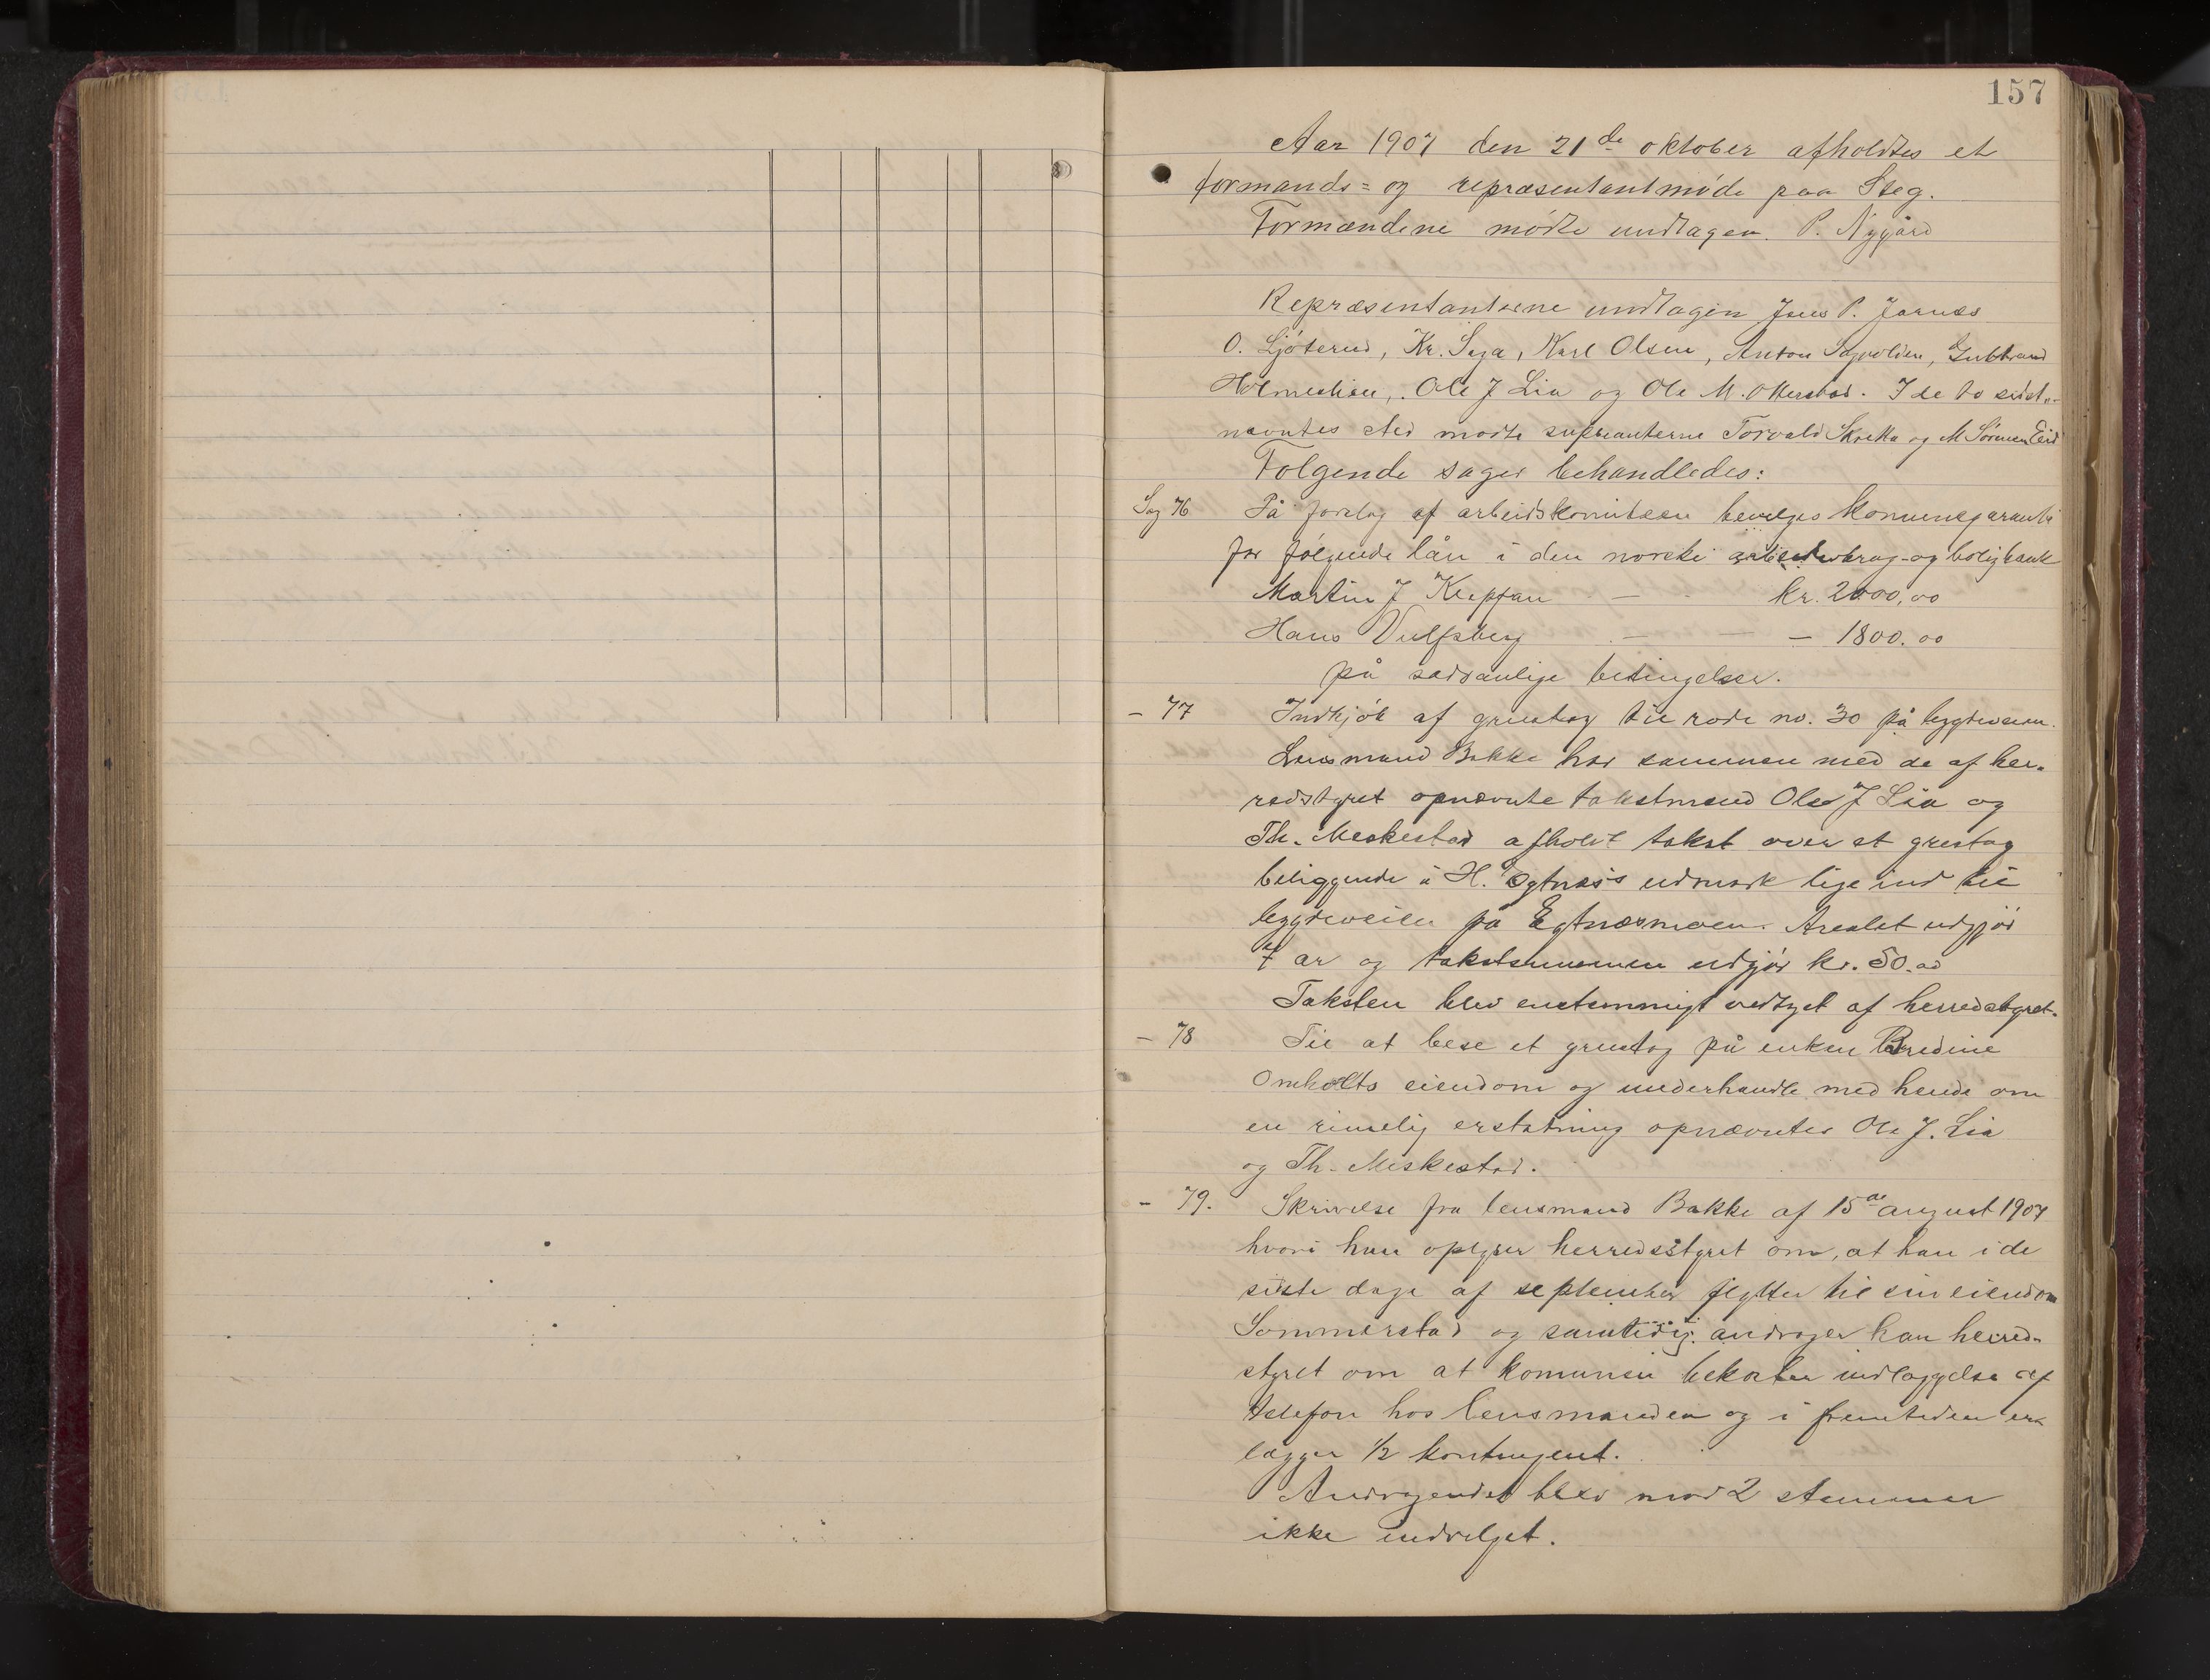 157
Aar 1907 den 21de oktober afholdtes et
formands= og repræsentantmøde paa Steg.
Formændene mødte undtagen P. Nygård
Repræsentanterne undtagen Jens P. Jarnæs
O. Ljøterud, Kr. Saga, Karl Olsen, Anton Sagvolden, Gulbrand
Holmenlien, Ole J Lia og Ole M. Otterstad. I de to sidst-
nævntes sted mødte supleanterne Torvald Skretta og M Sørensen Eid
Følgende sager behandledes:
Sag 76 På forslag af arbeidskomiteen bevilges kommunegaranti
for følgende lån i den norske arbeiderbrug- og boligbank
Martin J Klepfan — kr. 2000,00
Hans Vulfsberg — — — 1800.00
på sædvanlige betingelser.
— 77 Indkjøb af grustag til rode no. 30 på bygdeveien.
Lensmand Bakke har sammen med de af her-
redstyret opnævnte takstmænd Ole J Lia og
Th. Meskestad afholdt takst over et grustag
beliggende i H. Egtnæs's udmark lige ind til
bygdeveien på Egtnæsmoen. Arealet udgjør
4 ar og takstsummen udgjør kr. 50.00
Taksten blev enstemmigt vedtget af herredstyret.
— 78 Til at bese et grustag på enken Bredine
Omholts eiendom og underhandle med hende om
en rimelig erstatning opnævntes Ole J. Lia
og Th. Meskestad.
— 79. Skrivelse fra lensmand Bakke af 15de august 1907
hvori han oplyser herredsstyret om, at han i de
siste dage af september flytter til sin eiendom
Sommerstad og samtidig andrager han herred-
styret om at komunen bekoster indlæggelse af
telefon hos lensmanden og i fremtiden er-
lægger 1/2 kontingent.
Andragendet blev mod 2 stemmer
ikke indvilget.